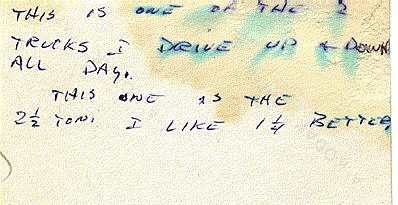 THIS IS ONE OF THE 2
TRUCKS I DRIVE UP + DOWN
ALL DAY.
THIS ONE IS THE
2½ TON. I LIKE 1¼ BETTER